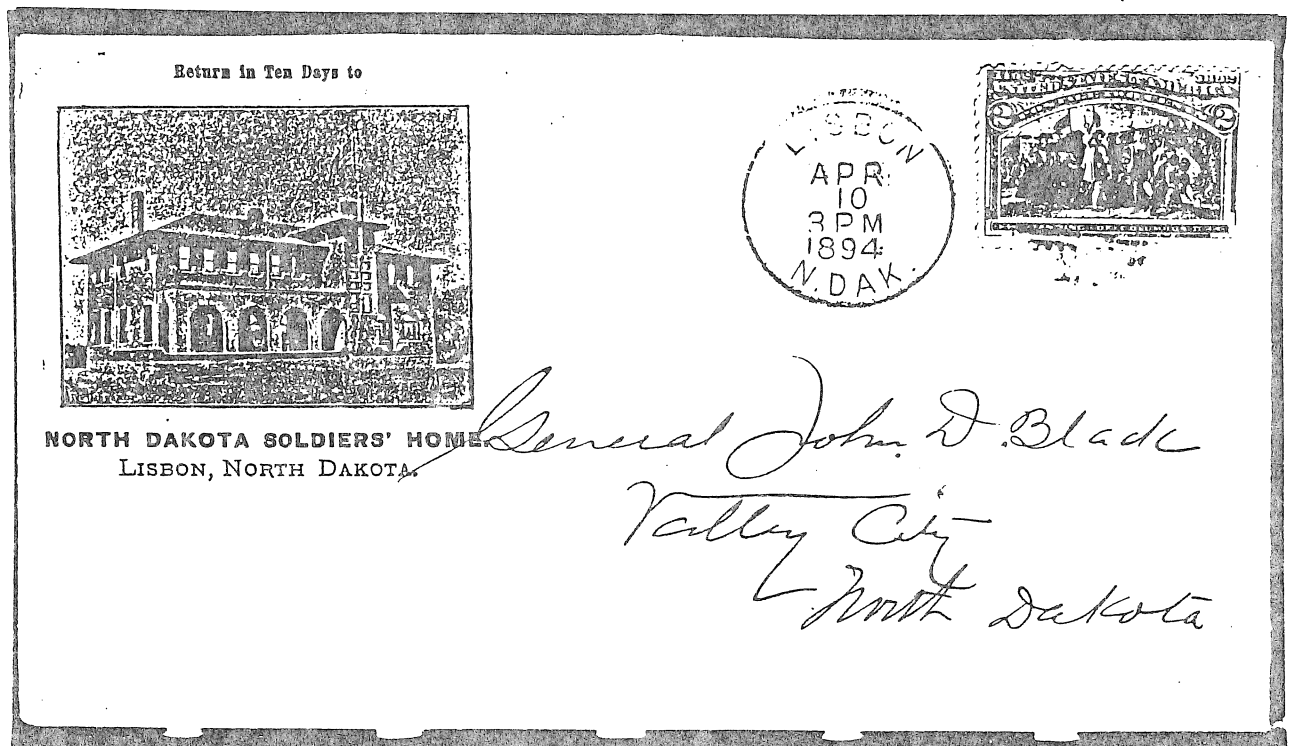 Return in Ten Days to
NORTH DAKOTA SOLDIERS' HOME
LISBON, NORTH DAKOTA.
LISBON
APR
10
3 PM
1894
N. DAK.
UNITED STATES OF AMERICA
2 2
General John D. Black
Valley City
North Dakota